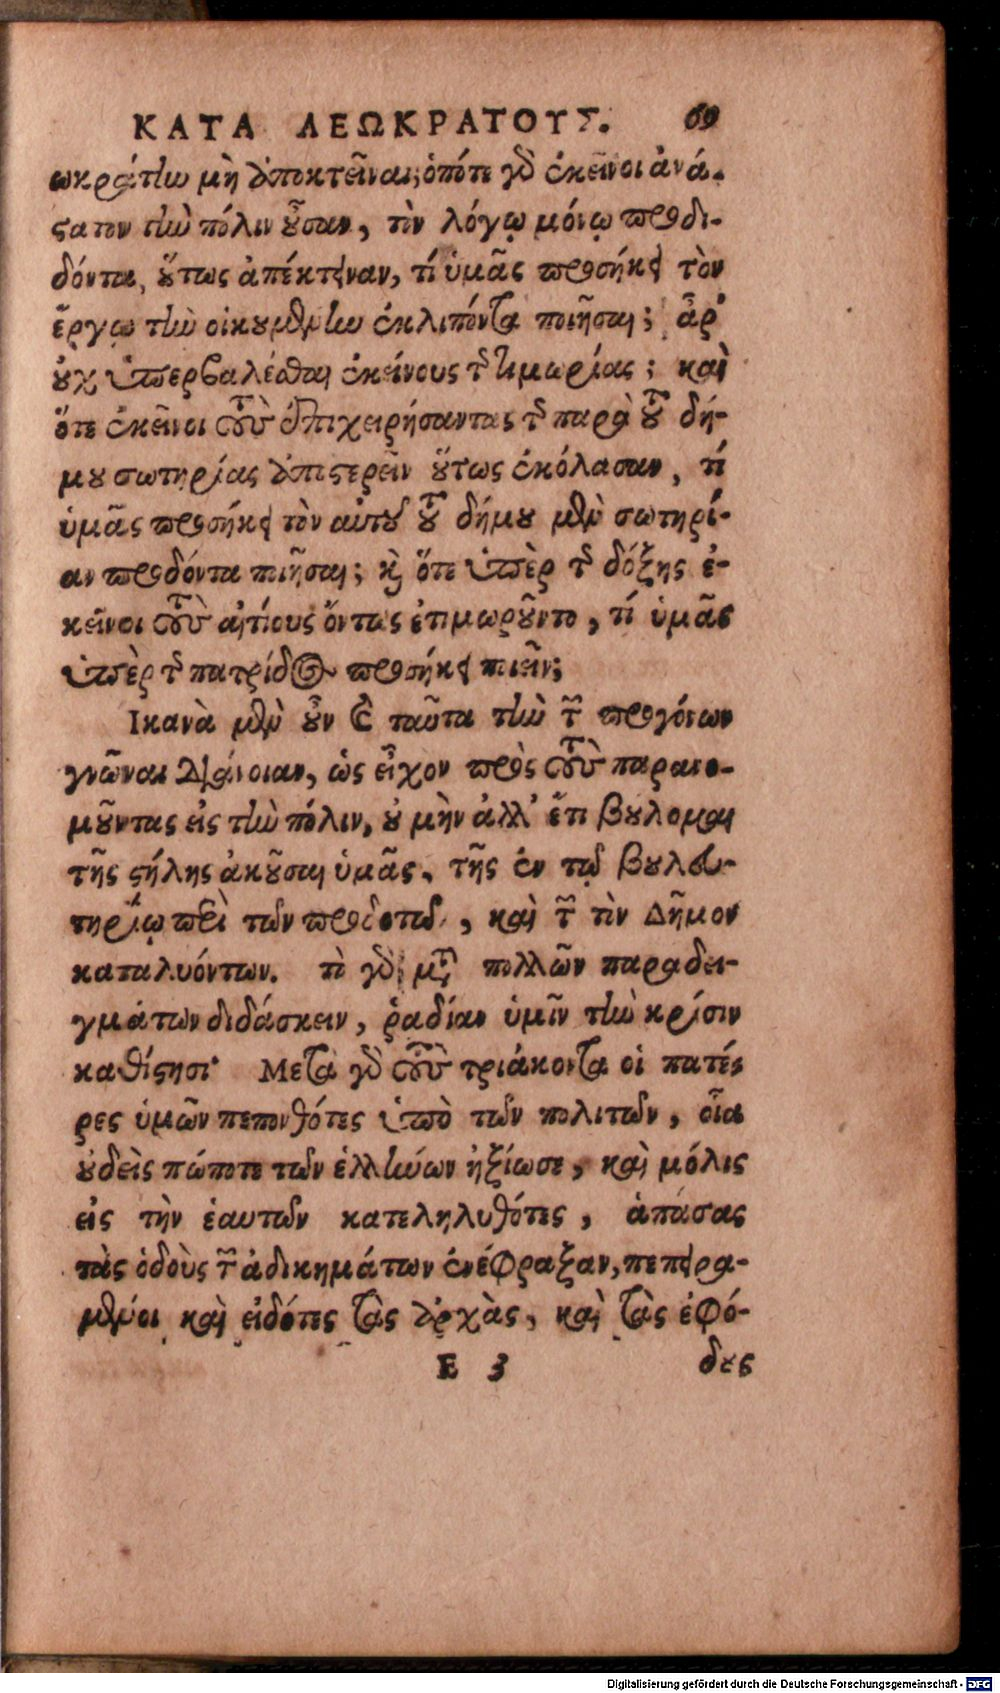 ΚΑΤΑ ΛΕΩΚΡΑΤΟΥΣ. 69
ωκράτην μὴ ἀποκτεῖναι; ὁπότε γὰρ ἐκεῖνοι ἀνά-
στατον τὴν πόλιν οὖσαν, τὸν λόγῳ μόνῳ προδι-
δόντα, οὕτως ἀπέκτειναν, τί ὑμᾶς προσήκει τὸν
ἔργῳ τὴν οἰκουμένην ἐκλιπόντα ποιῆσαι; ἆρ'
οὐχ ὑπερβαλέσθαι ἐκείνους τῆς τιμωρίας; καὶ
ὅτε ἐκεῖνοι τοὺς ἐπιχειρήσαντας τῆς παρὰ τοῦ δή-
μου σωτηρίας ἀποστερεῖν οὕτως ἐκόλασαν, τί
ὑμᾶς προσήκει τὸν αὐτοῦ τοῦ δήμου μὲν σωτηρί-
αν προδόντα ποιῆσαι; καὶ ὅτε ὑπὲρ τῆς δόξης ἐ-
κεῖνοι τοὺς αἰτίους ὄντας ἐτιμωροῦντο, τί ὑμᾶς
ὑπὲρ τῆς πατρίδος προσήκει ποιεῖν;
Ικανὰ μὲν οὖν καὶ ταῦτα τὴν τῶν προγόνων
γνῶναι διάνοιαν, ὡς εἶχον πρὸς τοὺς παρανο-
μοῦντας εἰς τὴν πόλιν, οὐ μὴν ἀλλ' ἔτι βούλομαι
τῆς στήλης ἀκοῦσαι ὑμᾶς, τῆς ἐν τῷ βουλευ-
τηρίῳ περὶ τῶν προδοτῶν, καὶ τῶν τὸν Δῆμον
καταλυόντων. τὸ γὰρ μετὰ πολλῶν παραδει-
γμάτων διδάσκειν, ῥαδίαν ὑμῖν τὴν κρίσιν
καθίστησι· Μετὰ γὰρ τοὺς τριάκοντα οἱ πατέ-
ρες ὑμῶν πεπονθότες ὑπὸ τῶν πολιτῶν, οἷα
οὐδεὶς πώποτε τῶν ἑλλήνων ἠξίωσε, καὶ μόλις
εἰς τὴν ἑαυτῶν κατεληλυθότες, ἁπάσας
τὰς ὁδοὺς τῶν ἀδικημάτων ἐνέφραξαν, πεπειρα-
μένοι καὶ εἰδότες τὰς ἀρχὰς, καὶ τὰς ἐφό-
E 3 δους
Digitalisierung gefördert durch die Deutsche Forschungsgemeinschaft - DFG